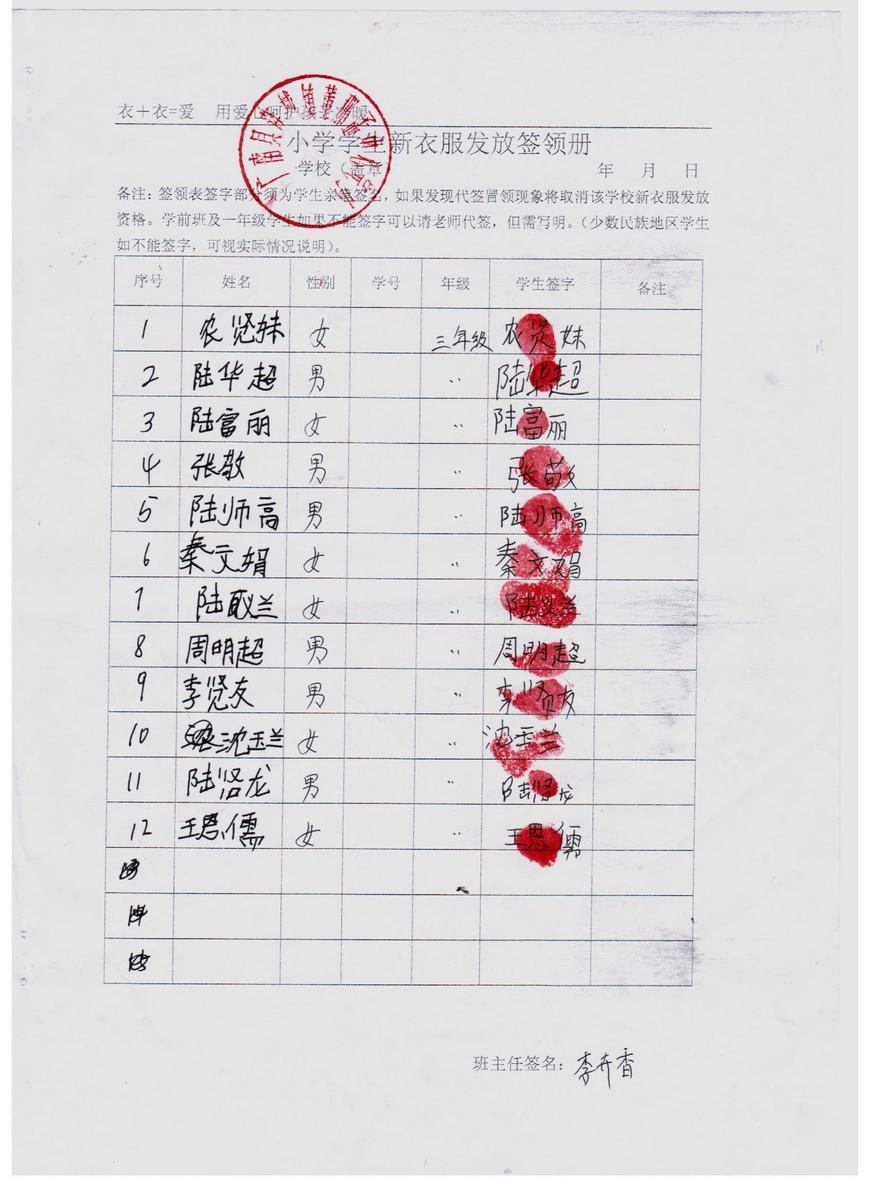 衣+衣=爱 用爱心呵护孩子冷暖
小学学生新衣服发放签领册
学校(盖章) 年 月 日
备注:签领表签字部分须为学生亲笔签名,如果发现代签冒领现象将取消该学校新衣服发放
资格。学前班及一年级学生如果不能签字可以请老师代签,但需写明。(少数民族地区学生
如不能签字,可视实际情况说明)。
序号 姓名 性别 学号 年级 学生签字 备注
1 农贤妹 女 三年级 农贤妹
2 陆华超 男 〃 陆华超
3 陆富丽 女 〃 陆富丽
4 张敬 男 〃 张敬
5 陆师高 男 〃 陆师高
6 秦文娟 女 〃 秦文娟
7 陆耿兰 女 〃 陆兰
8 周明超 男 〃 周明超
9 李贤友 男 〃 李贤友
10 沈玉兰 女 〃 沈玉兰
11 陆贤龙 男 〃 陆贤龙
12 王恩儒 女 〃 王恩儒
班主任签名:李卉香